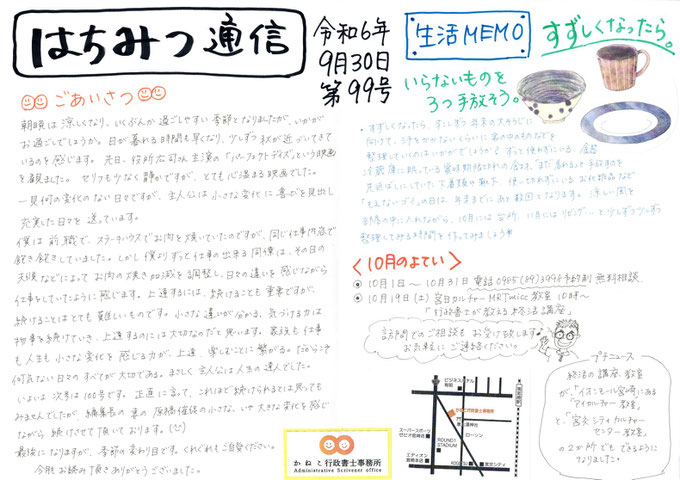 はちみつ通信
令和6年
9月30日
第99号
ごあいさつ
朝晩は涼しくなり、いくぶんか過ごしやすい季節となりましたが、いかが
お過ごしでしょうか。日が暮れる時間も早くなり、少しずつ秋が近づいてきて
いるのを感じます。先日、役所広司さん主演の「パーフェクトデイズ」という映画
を観ました。セリフも少なく静かですが、とても心温まる映画でした。
一見何の変化のない日々ですが、主人公は小さな変化に喜びを見出し
充実した日々を送っています。
僕は前職で、ステーキハウスでお肉を焼いていたのですが、同じ仕事内容で
飽き飽きしていました。しかし僕よりずっと仕事の出来る同僚は、その日の
天候などによってお肉の焼き加減を調整し、日々の違いを感じながら
仕事をしていたように感じます。上達するには、続けることも重要ですが、
続けることはとても難しいものです。小さな違いが分かる、気づける力は
物事を続けていき、上達するのには大切なのだと思います。家族も仕事
も人生も小さな変化を感じる力が、上達、楽しむことに繋がる。だからこそ
何気ない日々のすべてが大切である。まさしく主人公は人生の達人でした。
いよいよ次号は100号です。正直に言って、これほど続けられるとは思っても
みませんでしたが、編集長の妻の原稿催促の小さな、いや大きな変化を感じ
ながら続けさせて頂いております。
最後になりますが、季節の変わり目です。くれぐれもご自愛ください。
今月もお読み頂きありがとうございました。
かねこ行政書士事務所
Administrative Scrivener office
生活MEMO
すずしくなったら。
いらないものを
3つ手放そう。
・すずしくなったら、すこしずつ年末の大そうじに
向けて、汗をかかないくらいに家の中のものなどを
整理していくのはいかがでしょうか?ずっと使わずにいる食器
冷蔵庫に眠っている賞味期限切れの食材、「まだ着れる」と手放すのを
先延ばしにしていた下着類や靴下、使ってきれずにいるお化粧品など
「もえないゴミ」の日は、年末までにあと数回となります。涼しい風を
部屋の中に入れながら、10月には台所、11月にはリビング…と少しずつ少しずつ
整理してみる時間を作ってみましょう
<10月のよてい>
10月1日〜10月31日 電話0985(89)3994 予約制 無料相談
10月19日(土) 宮日カルチャーMRTmicc教室 10時〜
「行政書士が教える終活講座」
訪問でのご相談もお受け致します。
お気軽にご連絡ください。
プチニュース
終活の講座、教室
が、「イオンモール宮崎」にある
「マイカルチャー教室」
と「宮交シティカルチャー
センター教室」
の2か所でもできるように
なりました。
ビジネスホテル
かねこ行政書士事務所
ローソン
スーパースポーツ
ゼビオ宮崎店
ROUND1
STADIUM
エディオン
宮崎本店
宮交シティ